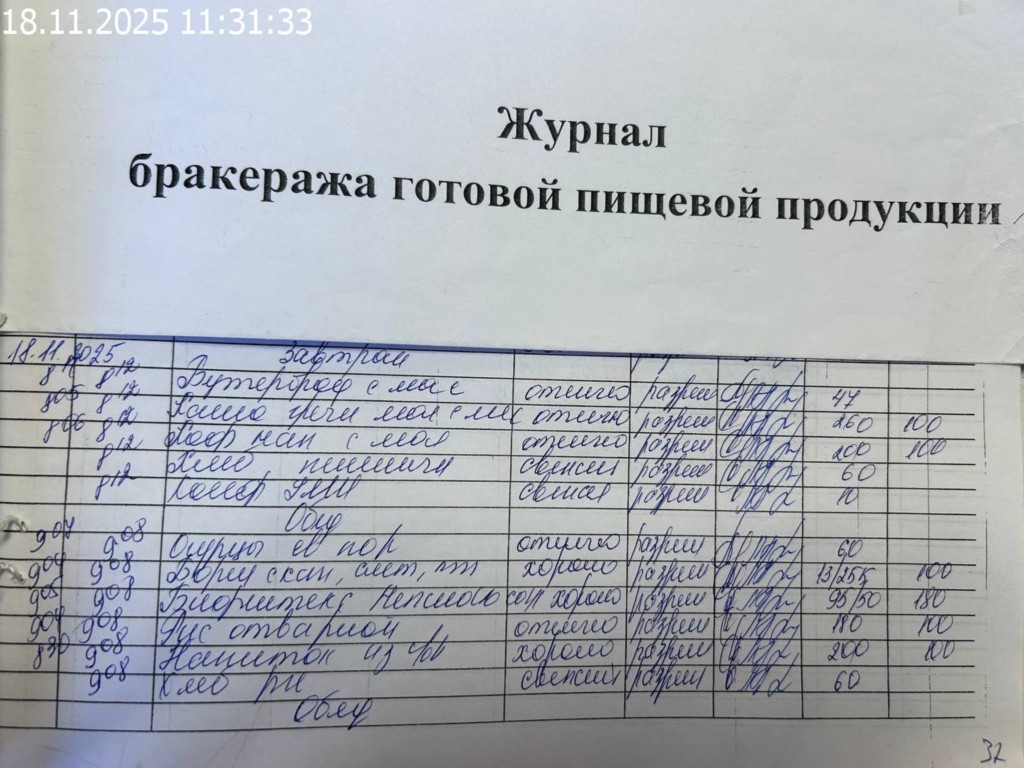 18.11.2025 11:31:33
Журнал
бракеража готовой пищевой продукции
18.11.2025 Завтрак
8¹² Бутерброд с отлично разреш 47
8⁰⁵ 8¹² Каша греч мол с отлично разреш 260 100
8⁰⁶ 8¹² Коф нап с мол отлично разреш 200 100
8¹² Хлеб пшенич свежий разреш 60
8¹² свежая разреш 10
Обед
9⁰⁷ 9⁰⁸ Огурцы св пор отлично разреш 60
9⁰⁴ 9⁰⁸ Борщ с кап, смет, хорошо разреш 13/255 100
9⁰⁵ 9⁰⁸ Бифштекс хорошо разреш 95/50 180
9⁰⁴ 9⁰⁸ Рис отварной отлично разреш 180 100
8³⁰ 9⁰⁸ Напиток из хорошо разреш 200 100
9⁰⁸ Хлеб рж свежий разреш 60
Обед
32